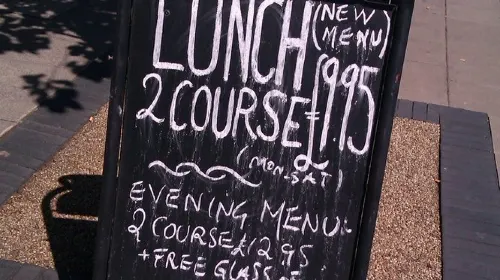 LUNCH (NEW MENU)
2 COURSE=£9.95
(MON-SAT)
EVENING MENU
2 COURSE £12.95
+ FREE GLASS OF